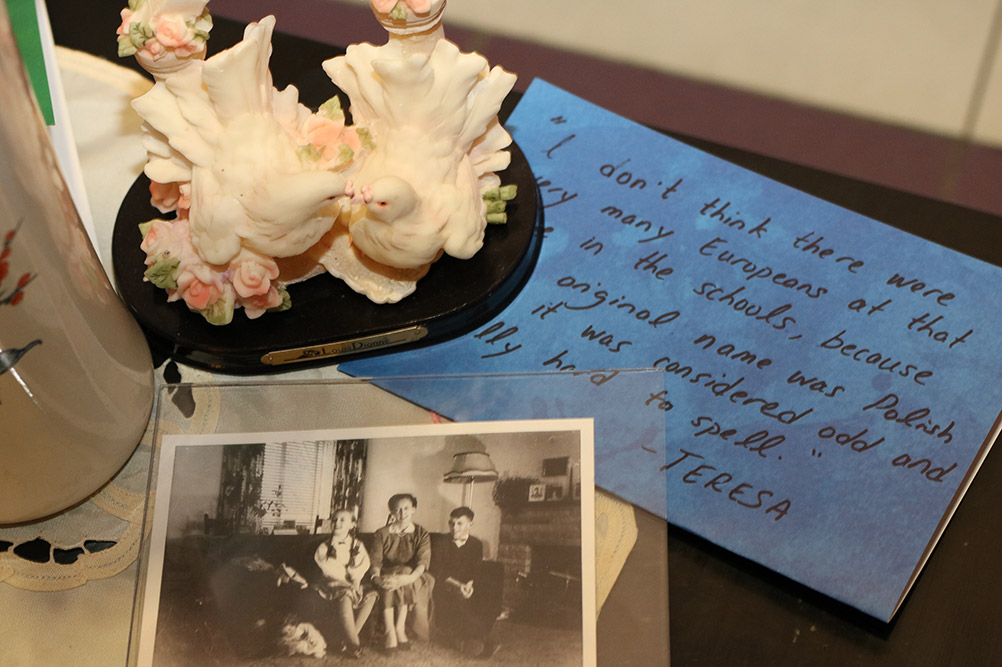 "I don't think there were
ery many Europeans at that
e in the schools, because
original name was Polish
it was considered odd and
lly hard to spell."
-TERESA